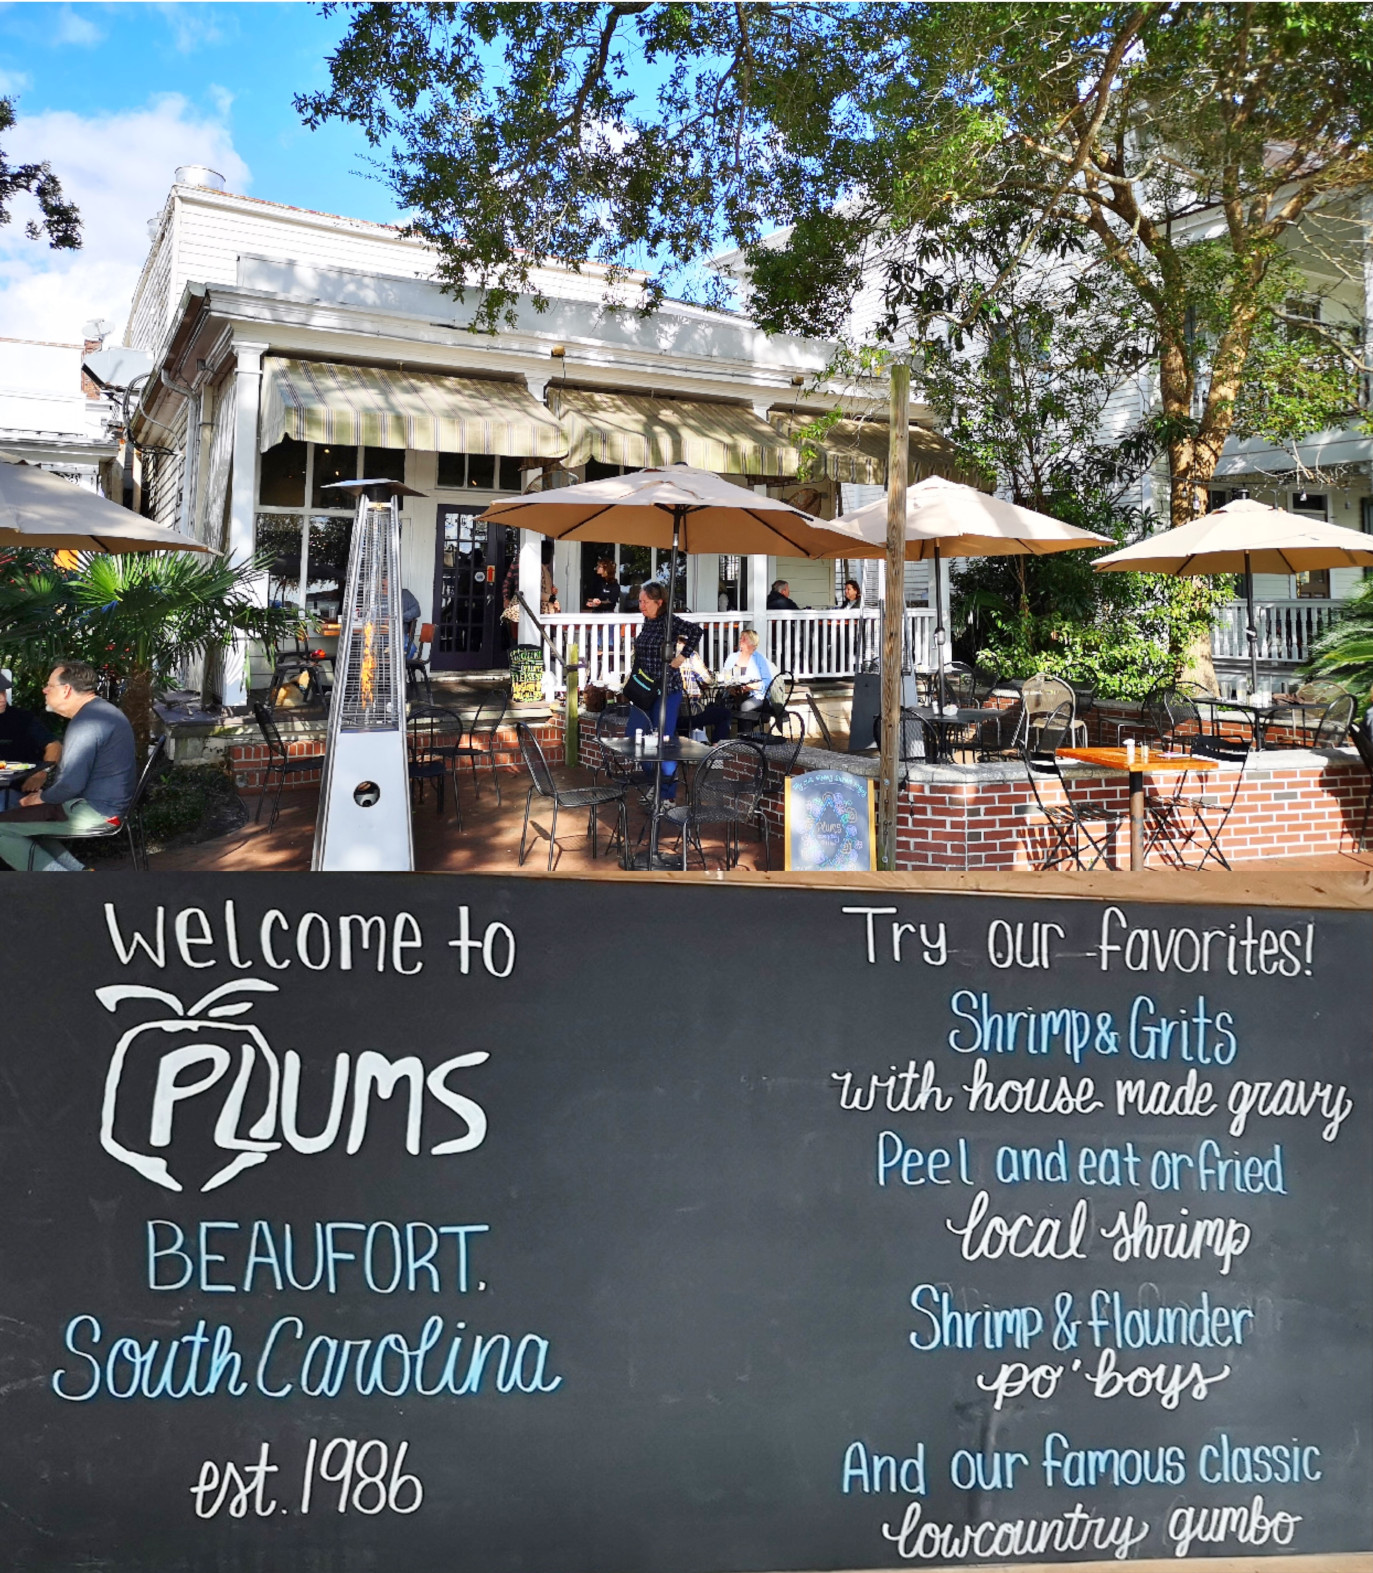 PLUMS
Welcome to
PLUMS
BEAUFORT,
South Carolina
est. 1986
Try our favorites!
Shrimp & Grits
with house made gravy
Peel and eat or fried
local shrimp
Shrimp & flounder
po' boys
And our famous classic
lowcountry gumbo